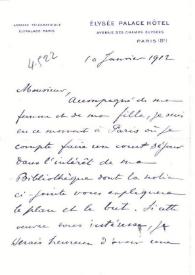 ADRESSE TÉLÉGRAPHIQUE
ÉLYPALACE PARIS
ÉLYSÉE PALACE HÔTEL
AVENUE DES CHAMPS ÉLYSÉES
PARIS (8e)
4522
10 Janvier 1912
Monsieur,
Accompagné de ma
femme et de ma fille, je suis
en ce moment à Paris où je
compte faire un court séjour
dans l'intérêt de ma
Bibliothèque dont la notice
ci-jointe vous expliquera
le plan et le but. Si cette
œuvre vous intéresse, je
serais heureux d'avoir une